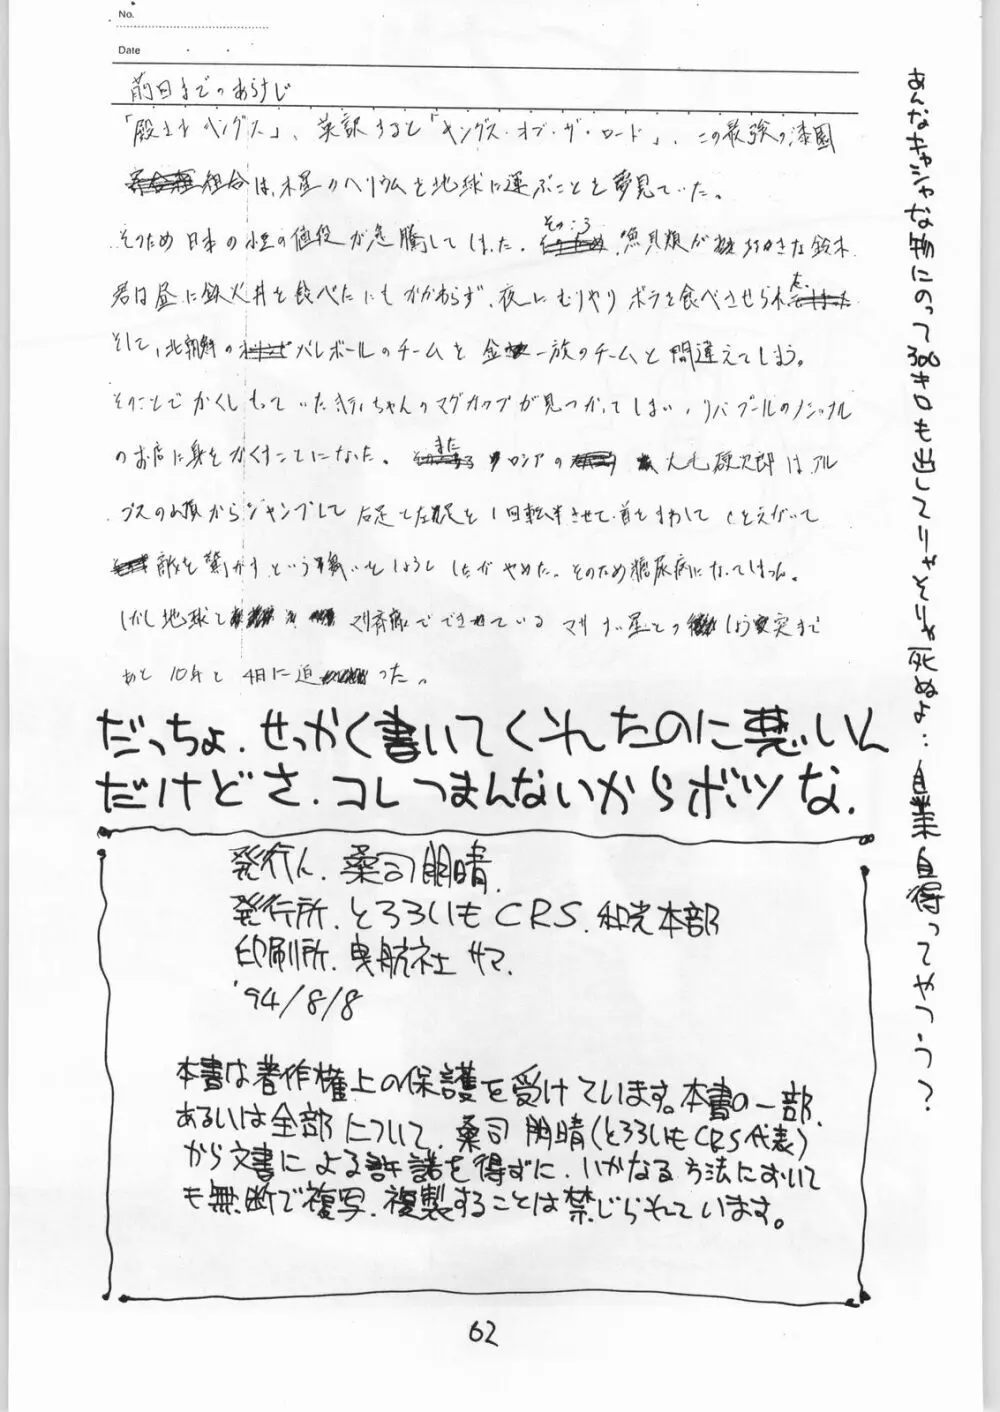 No.
Date
前日までのあらすじ
「殿様キングス」、英訳すると「キングス・オブ・ザ・ロード」、この最強の
組合は、木星のヘリウムを地球に運ぶことを夢見ていた。
そのため日本の小豆の値段が急騰してしまった。そのころ、魚貝類が好きな鈴木
君は昼に鉄火丼を食べたにもかかわらず、夜にむりやりボラを食べさせられた。
そして、北朝鮮のバレーボールのチームを金一族のチームと間違えてしまう。
そのことでかくしもっていたキティちゃんのマグカップが見つかってしまい、リバプールの
のお店に身をかくすことになった。またロシアの大毛硬次郎はアル
プスの山頂からジャンプして右足と左足を1回転半させて、首をまわして
敵を驚かすという しようとしたがやめた。そのため糖尿病になってしまった。
しかし地球と でできている しょう突まで
あと10年と4日に迫った。
だっちょ.せっかく書いてくれたのに悪いん
だけどさ.コレつまんないからボツな.
発行人.桑司朋晴.
発行所.とろろいもCRS.和光本部
印刷所.曳航社サマ.
'94/8/8
本書は著作権上の保護を受けています。本書の一部.
あるいは全部について.桑司朋晴(とろろいもCRS代表)
から文書による許諾を得ずに.いかなる方法において
も無断で複写.複製することは禁じられています。
あんなキャシャな物にのって300キロも出してりゃそりゃ死ぬよ…自業自得ってやつう?
62